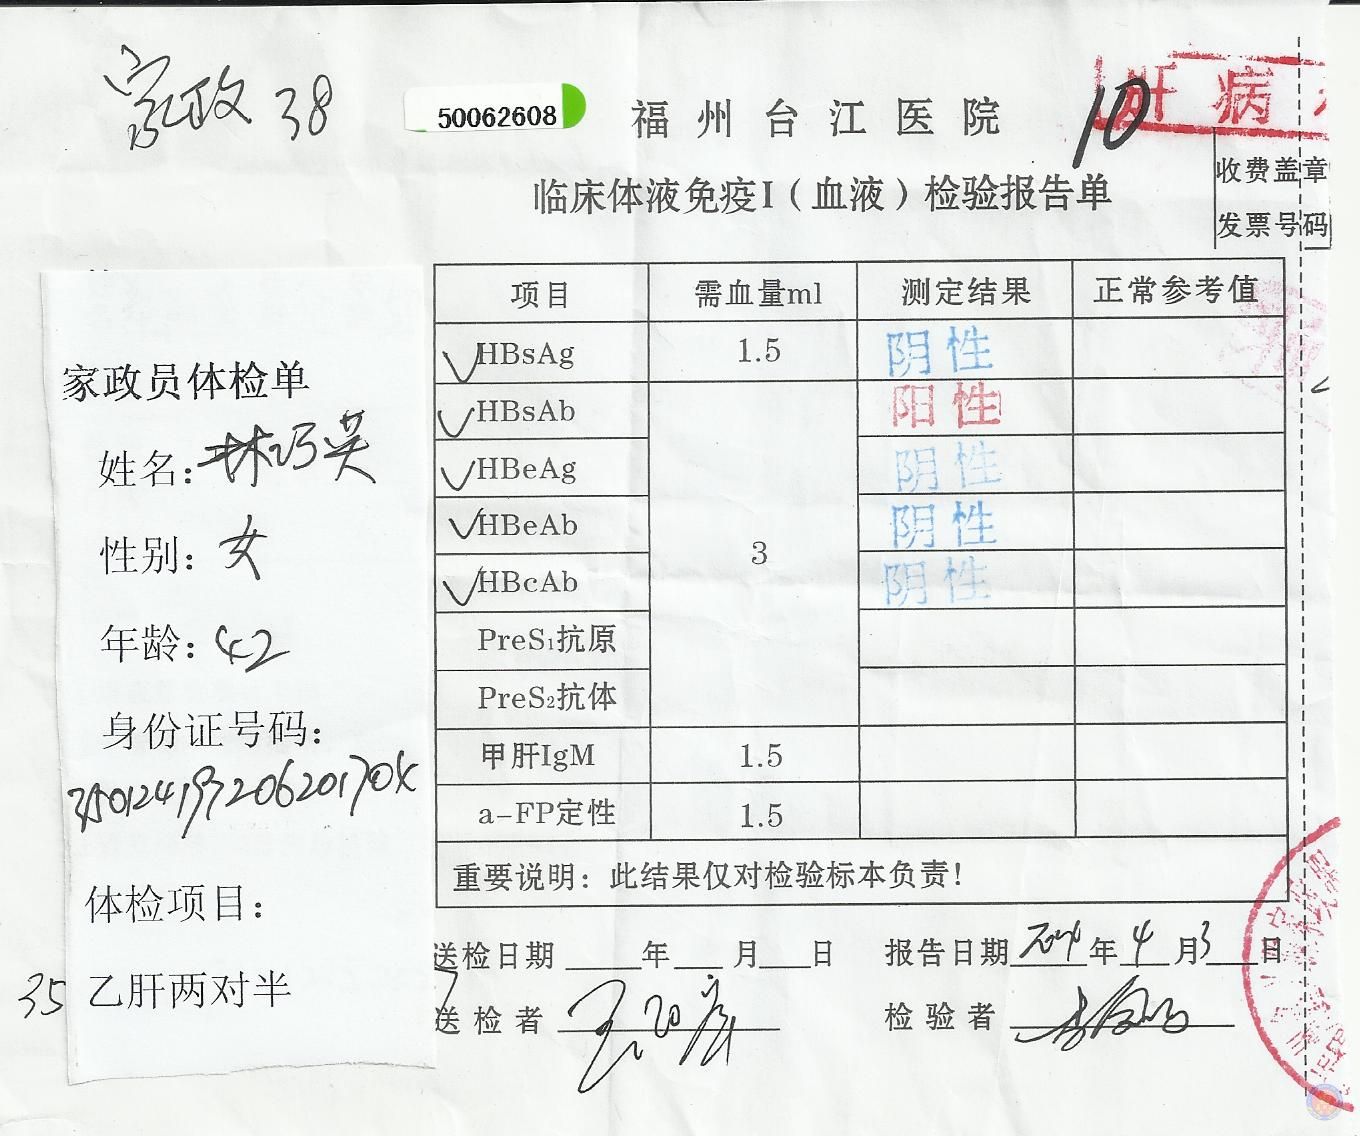 家政 38
50062608
福州台江医院
10
肝病
临床体液免疫I（血液）检验报告单
收费盖章
发票号码
家政员体检单
姓名：林巧英
性别：女
年龄：42
身份证号码：
35012419720620170X
体检项目：
35 乙肝两对半
项目 需血量ml 测定结果 正常参考值
HBsAg 1.5 阴性
HBsAb 阳性
HBeAg 阴性
HBeAb 3 阴性
HBcAb 阴性
PreS₁抗原
PreS₂抗体
甲肝IgM 1.5
a-FP定性 1.5
重要说明：此结果仅对检验标本负责！
送检日期 年 月 日 报告日期 2014 年 4 月 3 日
送检者 检验者